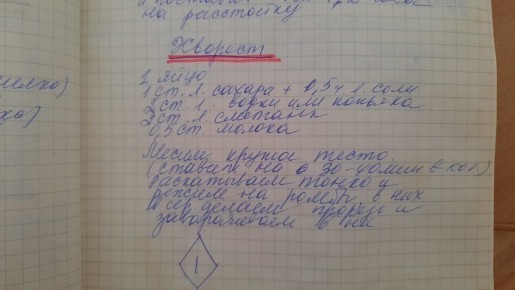 на расстойку
Хворост
1 яйцо
1 ст. л. сахара + 0,5 ч. л. соли
2 ст. л. водки или коньяка
2 ст. л. сметаны
0,5 ст. молока
Месим крутое тесто.
(ставим на 30-40 мин в хол.)
Раскатываем тонко и
режем на ромбы, в них
делаем прорезь и
заворачиваем
1